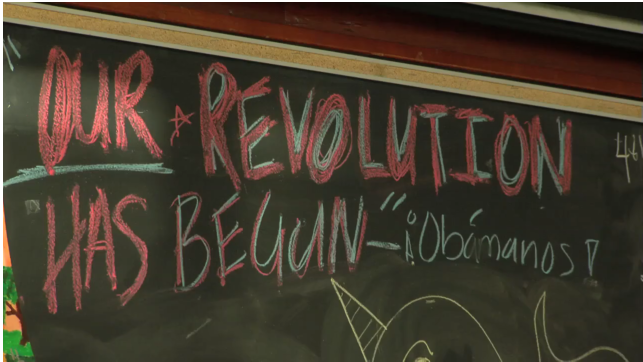 "OUR REVOLUTION
HAS BEGUN-" ¡Obámanos!